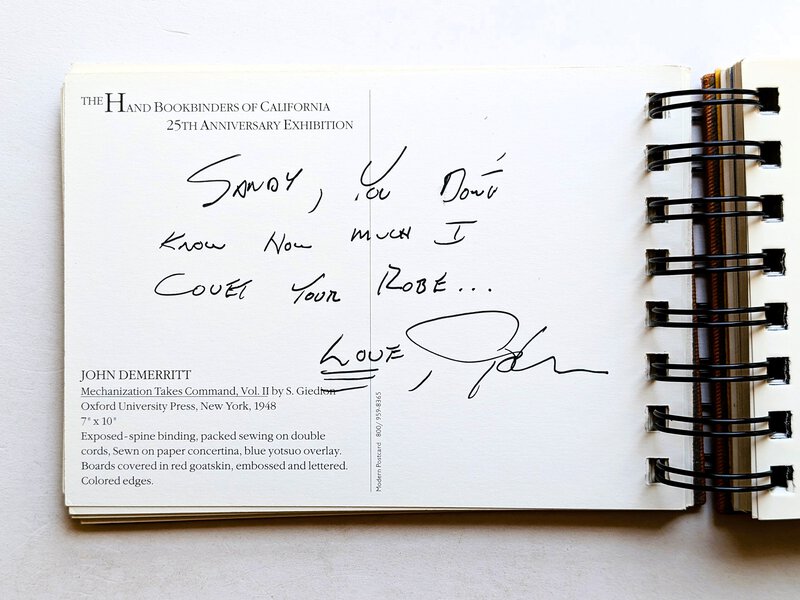 THE HAND BOOKBINDERS OF CALIFORNIA
25TH ANNIVERSARY EXHIBITION
SANDY, YOU DON'T
KNOW HOW MUCH I
COVET YOUR ROBE...
LOVE, John
JOHN DEMERRITT
Mechanization Takes Command, Vol. II by S. Giedion
Oxford University Press, New York, 1948
7" x 10"
Exposed-spine binding, packed sewing on double
cords, Sewn on paper concertina, blue yotsuo overlay.
Boards covered in red goatskin, embossed and lettered.
Colored edges.
Modern Postcard 800/ 959-8365